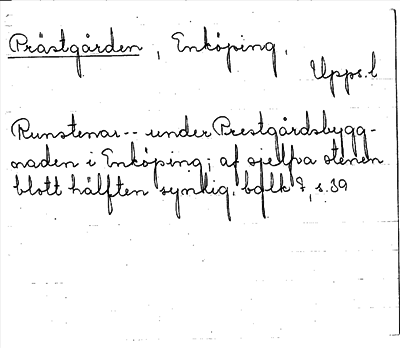 Prästgården, Enköping.
Upps. l
Runstenar -- under Prestgårdsbygg-
naden i Enköping; af sjelfva stenen
blott hälften synlig. balk 7, s. 39